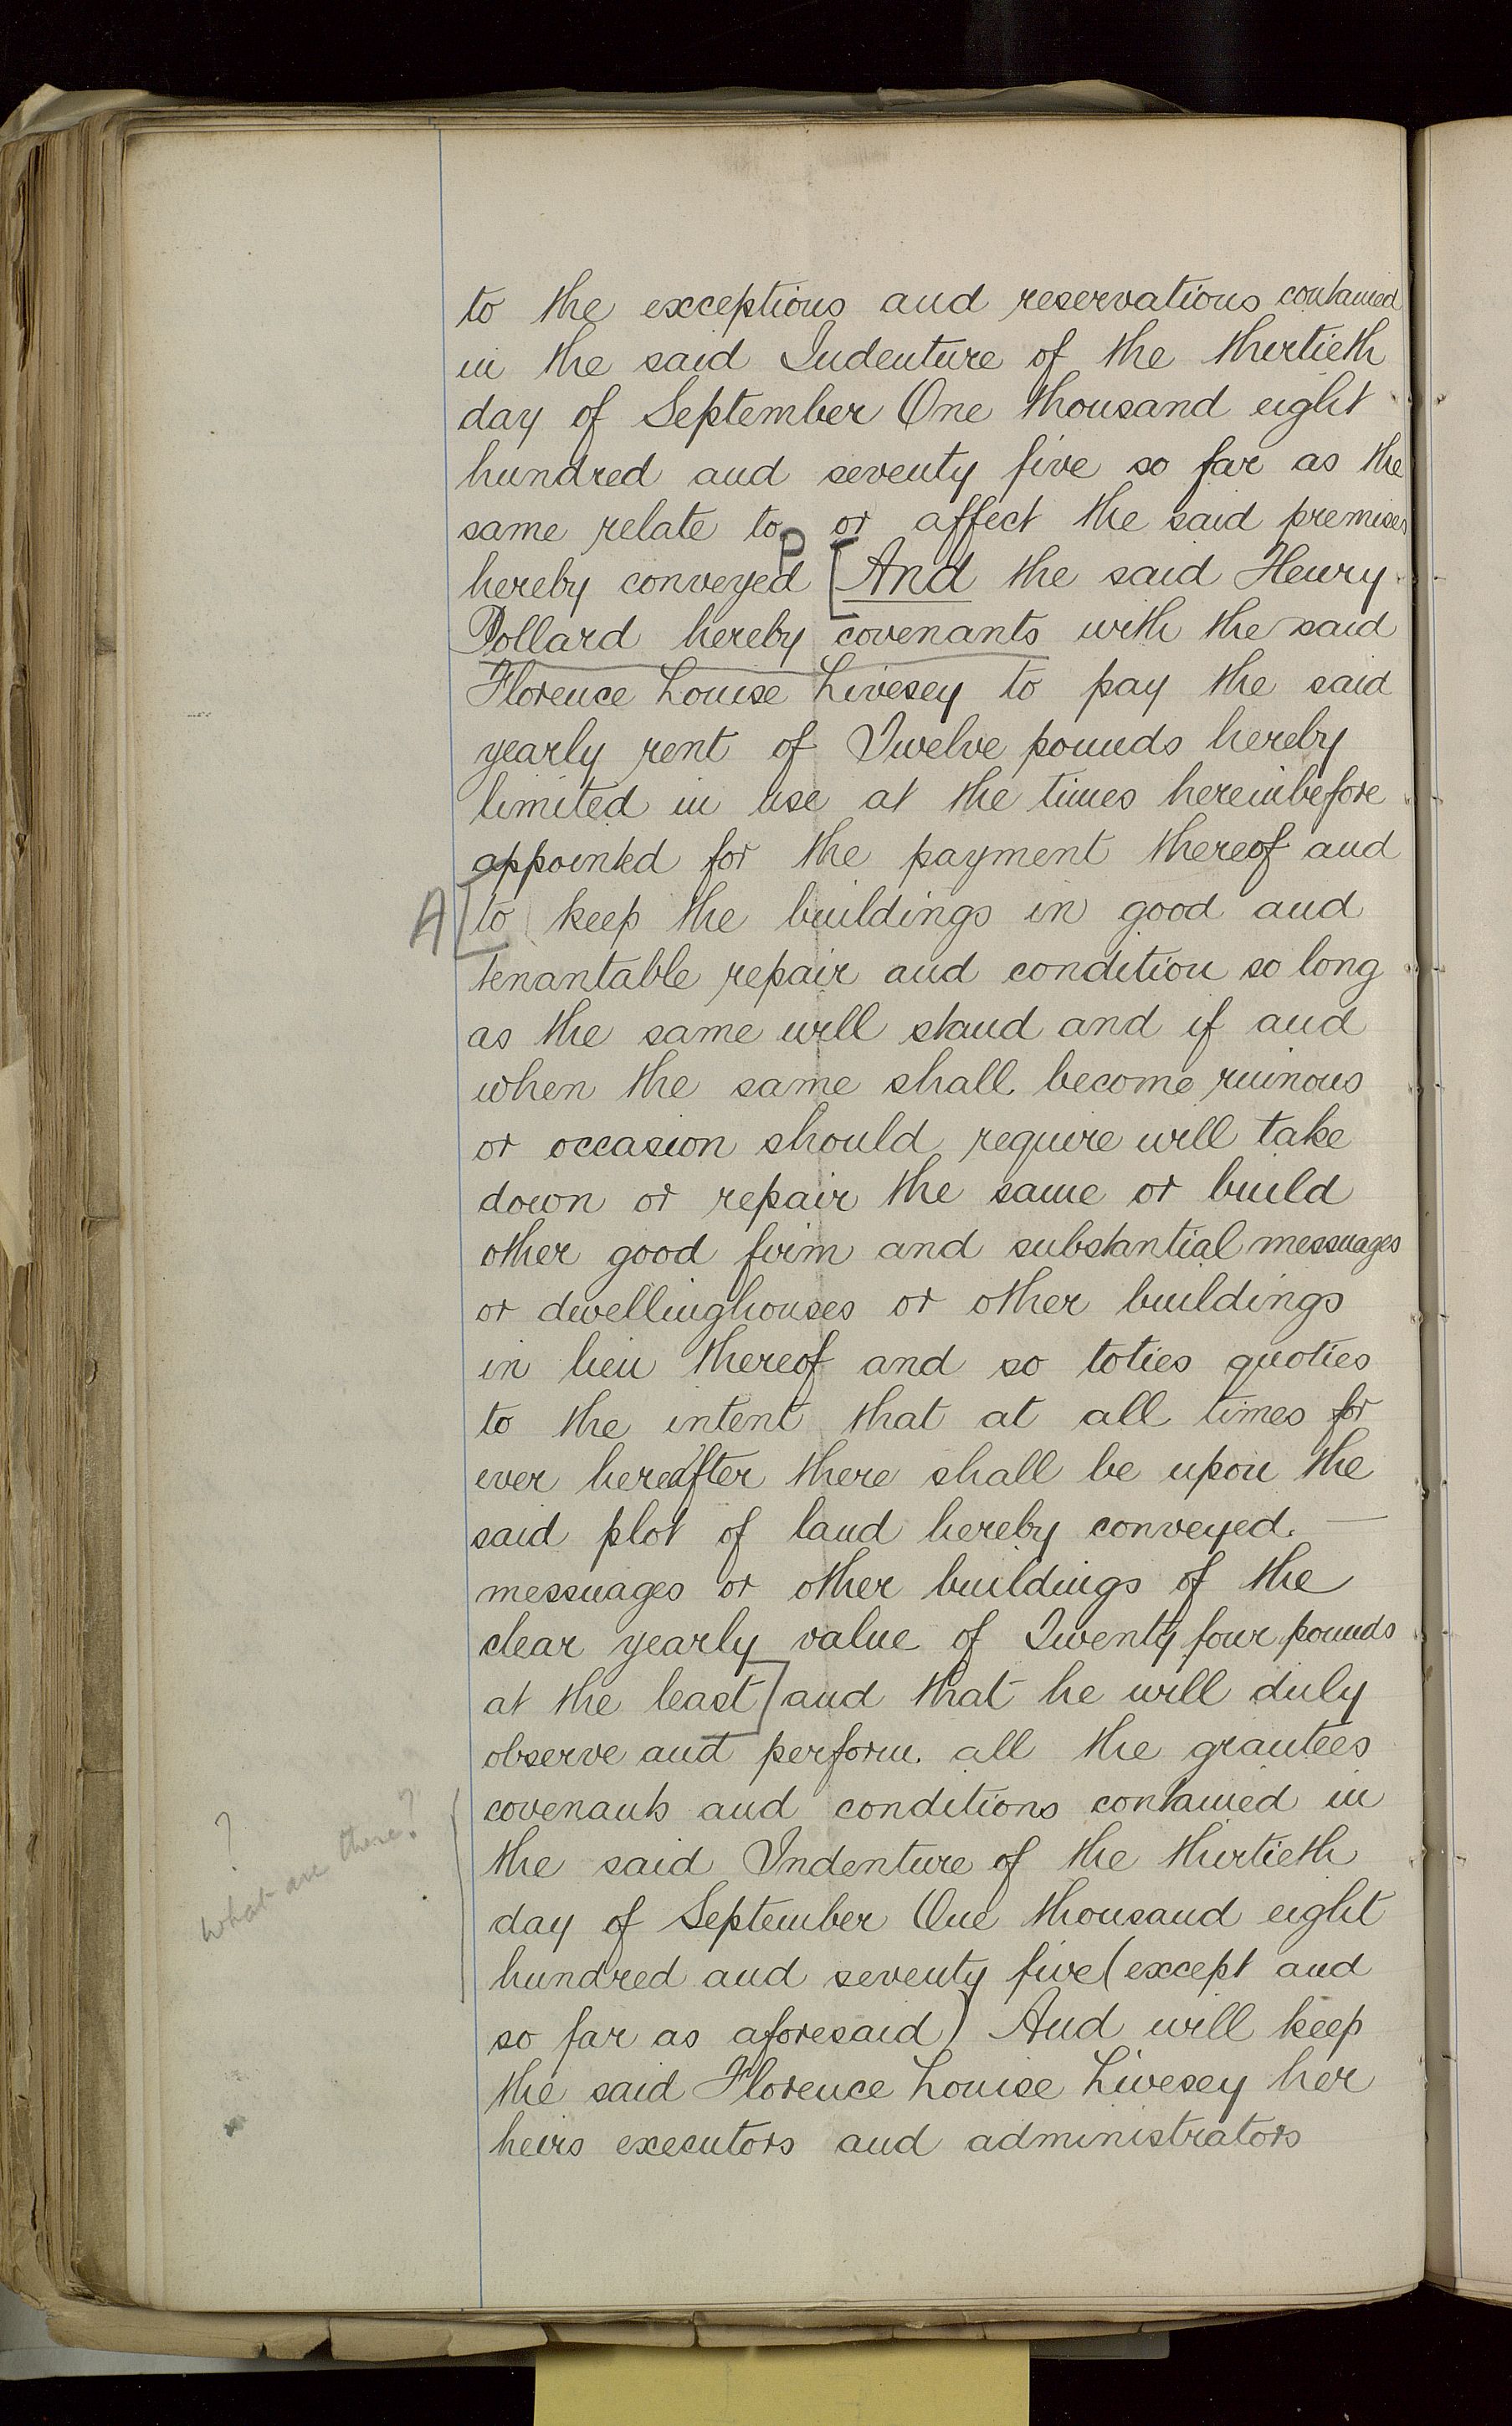 to the exceptions and reservations contained
in the said Indenture of the thirtieth
day of September One thousand eight
hundred and seventy five so far as the
same relate to or affect the said premises
P
hereby conveyed [And the said Henry
Pollard hereby covenants with the said
Florence Louise Livesey to pay the said
yearly rent of Twelve pounds hereby
limited in use at the times hereinbefore
appointed for the payment thereof and
A [to keep the buildings in good and
tenantable repair and condition so long
as the same will stand and if and
when the same shall become ruinous
or occasion should require will take
down or repair the same or build
other good firm and substantial messuages
or dwellinghouses or other buildings
in lieu thereof and so toties quoties
to the intent that at all times for
ever hereafter there shall be upon the
said plot of land hereby conveyed. —
messuages or other buildings of the
clear yearly value of Twenty four pounds
at the least] and that he will duly
observe and perform all the grantees
covenants and conditions contained in
the said Indenture of the thirtieth
day of September One thousand eight
hundred and seventy five (except and
so far as aforesaid) And will keep
the said Florence Louise Livesey her
heirs executors and administrators
?
What are these?